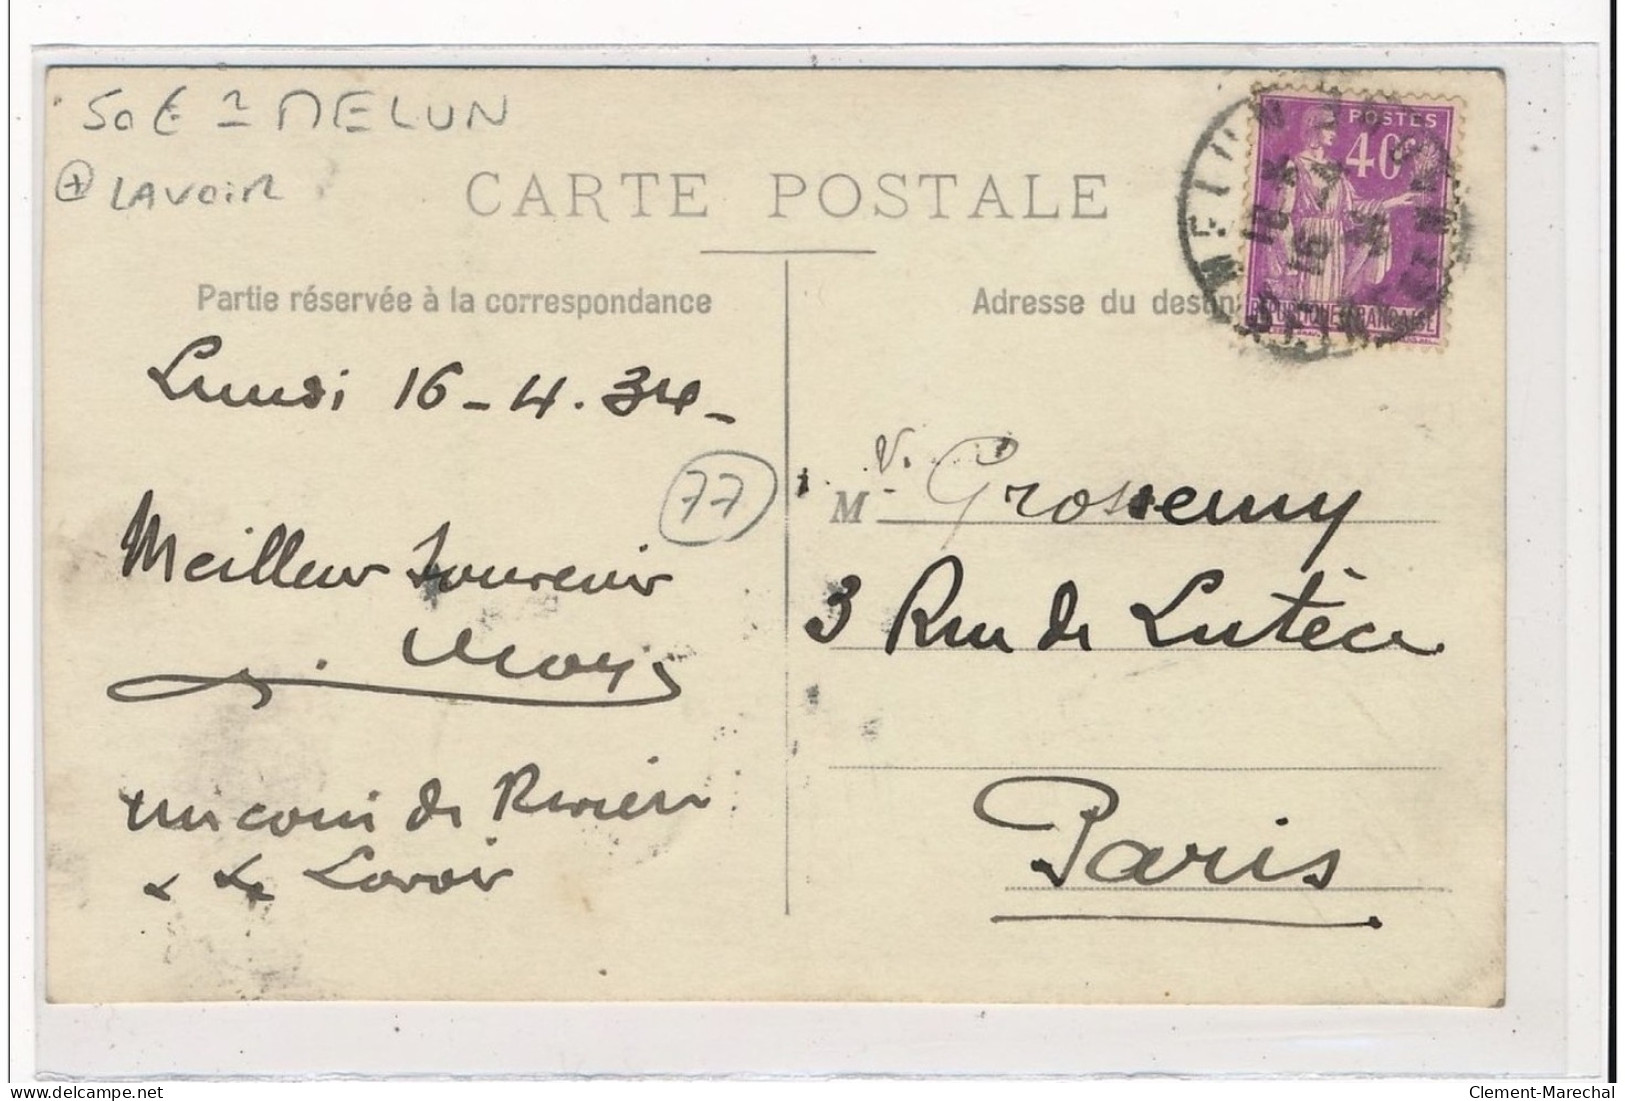 50 € 1 MELUN
+ LAVOIR
CARTE POSTALE
POSTES
40
REPUBLIQUE FRANÇAISE
MELUN
16 - 4
34
Partie réservée à la correspondance
Adresse du destin
Lundi 16 - 4 . 34 -
77
Meilleur souvenir
un coin de Rivière
& Le Lavoir
M V. Grossemy
3 Rue de Lutèce
Paris
delcampe.net
Clement-Marechal